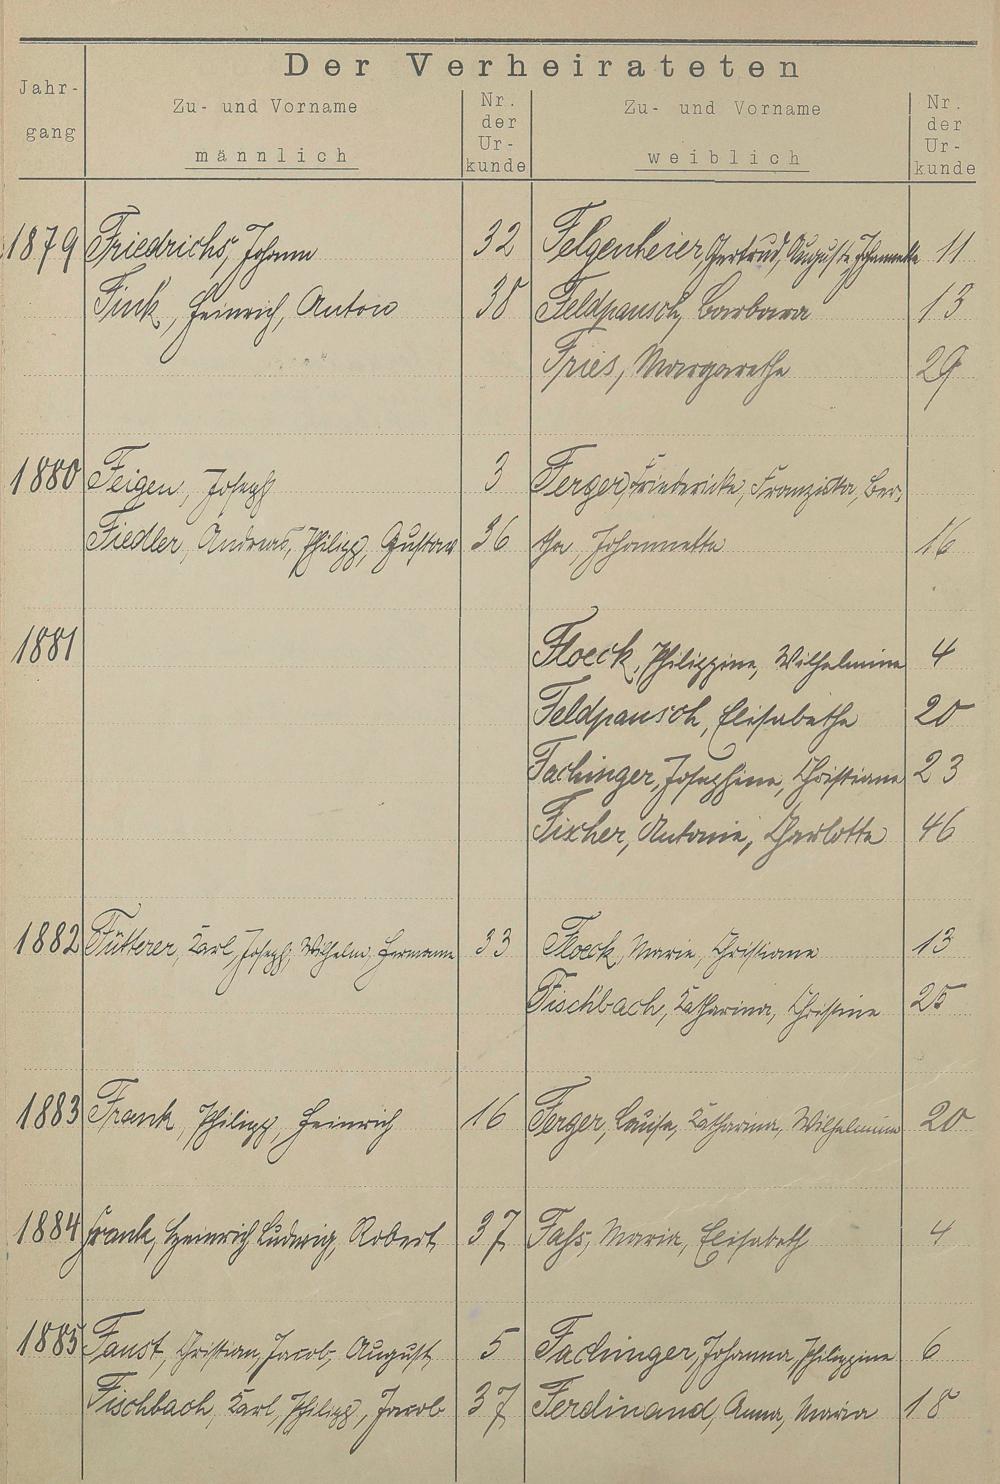 Der Verheirateten
Jahr-
gang
Zu- und Vorname
männlich
Nr.
der
Ur-
kunde
Zu- und Vorname
weiblich
Nr.
der
Ur-
kunde
1879 Friedrichs, Johann 32 Felgenheier, Gertrud, Auguste, Johannette 11
Fink, Heinrich, Anton 38 Feldpausch, Barbara 13
Fries, Margarethe 29
1880 Feigen, Joseph 3 Ferger, Friedericke, Franziska, Ber-
Fiedler, Andreas, Philipp, Gustav 36 tha, Johannetta 16
1881 Floeck, Philippine, Wilhelmine 4
Feldpausch, Elisabethe 20
Fachinger, Josephine, Christiane 23
Fischer, Antonie, Charlotte 46
1882 Fütterer, Karl, Joseph, Wilhelm, Hermann 33 Floeck, Marie, Christiane 13
Fischbach, Katharina, Christine 25
1883 Frank, Philipp, Heinrich 16 Ferger, Louise, Katharina, Wilhelmine 20
1884 Frank, Heinrich Ludwig, Robert 37 Fahs, Maria, Elisabeth 4
1885 Faust, Christian, Jacob, August 5 Fachinger, Johanna, Philippine 6
Fischbach, Karl, Philipp, Jacob 37 Ferdinand, Anna, Maria 18